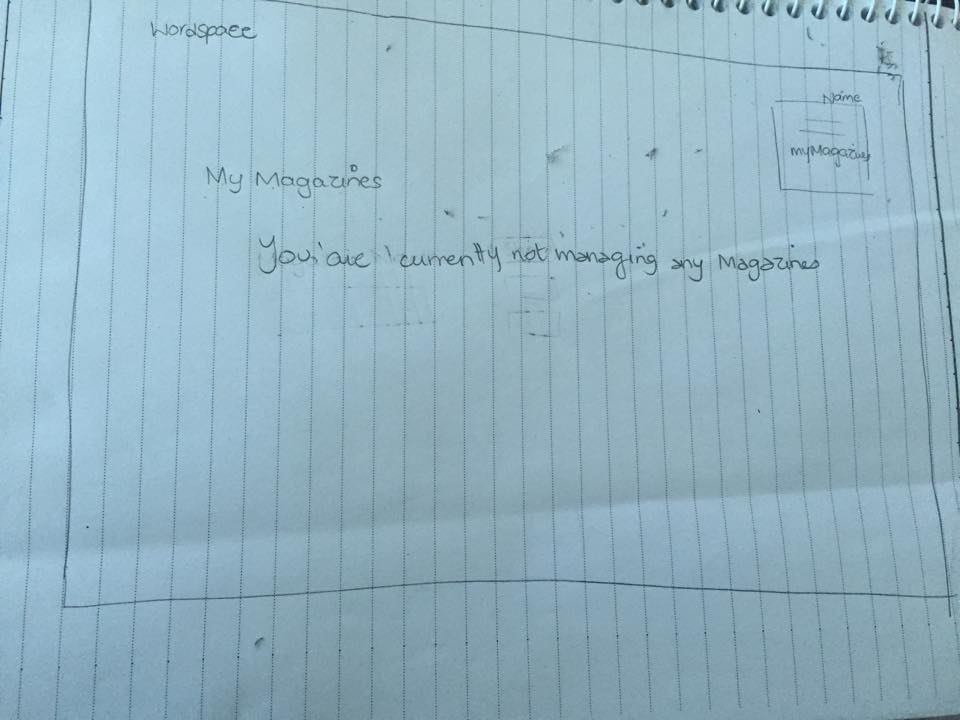 Wordspace
Name
myMagazines
My Magazines
You are currently not managing any Magazines